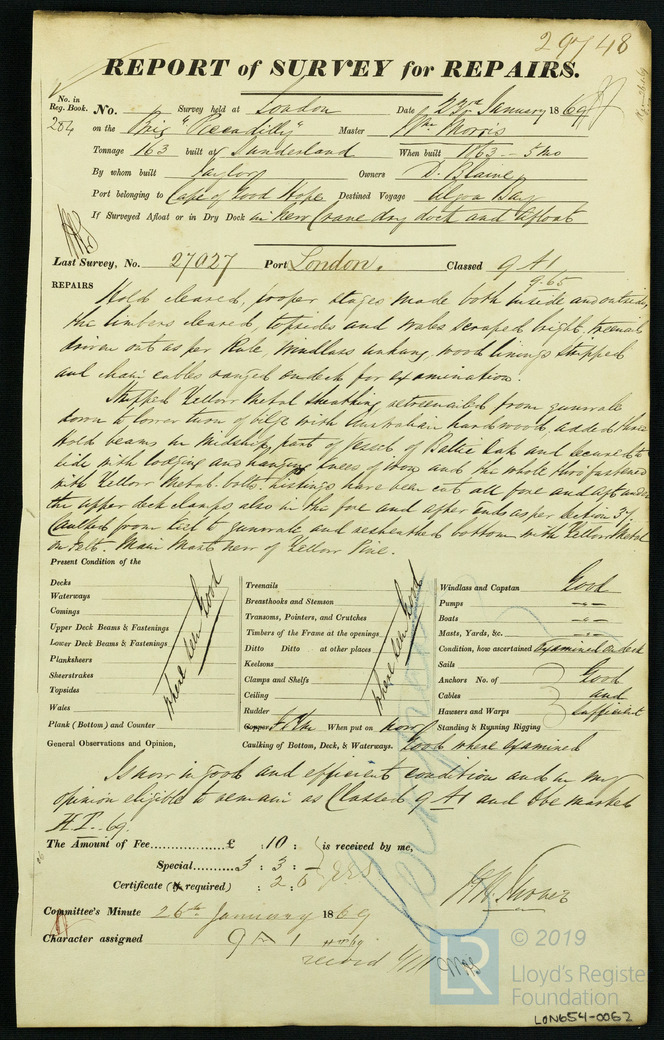 29748
REPORT of SURVEY for REPAIRS.
No. in Reg. Book.
284
No. Survey held at London Date 23rd January 1869
on the Brig "Piccadilly" Master Wm. Morris
Tonnage 163 built at Sunderland When built 1863 - 5 mo
By whom built Taylor Owners D. Blaine
Port belonging to Cape of Good Hope Destined Voyage Algoa Bay
If Surveyed Afloat or in Dry Dock in New Crane dry dock and afloat
Last Survey, No. 27027 Port London. Classed 9 A1
9.65
REPAIRS Hold cleared, proper stages made both inside and outside,
the limbers cleared, topsides and wales scraped bright, treenails
driven out as per Rule, Windlass unhung, wood linings stripped
and chain cables ranged on deck for examination.
Stripped Yellow Metal sheathing, retreenailed from gunwale
down to lower turn of bilge with Australian hardwood, added three
Hold beams in Midship part of Vessel of Baltic Oak and secured to
side with lodging and hanging knees of Iron and the whole thro' fastened
with Yellow Metal bolts. Listings have been cut all fore and aft under
the upper deck clamps also in the fore and after ends as per Section 37
Caulked from keel to gunwale and resheathed bottom with Yellow Metal
on Felt. Main Mast new of Yellow Pine.
Present Condition of the
Decks
Waterways
Comings
Upper Deck Beams & Fastenings
Lower Deck Beams & Fastenings
Planksheers
Sheerstrakes
Topsides
Wales
Plank (Bottom) and Counter
where seen Good
Treenails
Breasthooks and Stemson
Transons, Pointers, and Crutches
Timbers of the Frame at the openings
Ditto Ditto at other places
Keelsons
Clamps and Shelfs
Ceiling
Rudder
where seen Good
Copper When put on now
Windlass and Capstan Good
Pumps -"-
Boats -"-
Masts, Yards, &c. -"-
Condition, how ascertained Examined on deck
Sails
Anchors No. of Good
Cables and
Hawsers and Warps sufficient
Standing & Running Rigging
General Observations and Opinion, Caulking of Bottom, Deck, & Waterways. Good where examined
Is now in good and efficient condition and in my
opinion eligible to remain as Classed 9 A1 and to be marked
The Amount of Fee............... £ : 10 : is received by me,
Special......... 3 : 3 : -
Certificate (if required) : 2 . 6
Committee's Minute 26th January 1869
Character assigned 9 A 1
© 2019
LR
Lloyd's Register
Foundation
LON654-0062